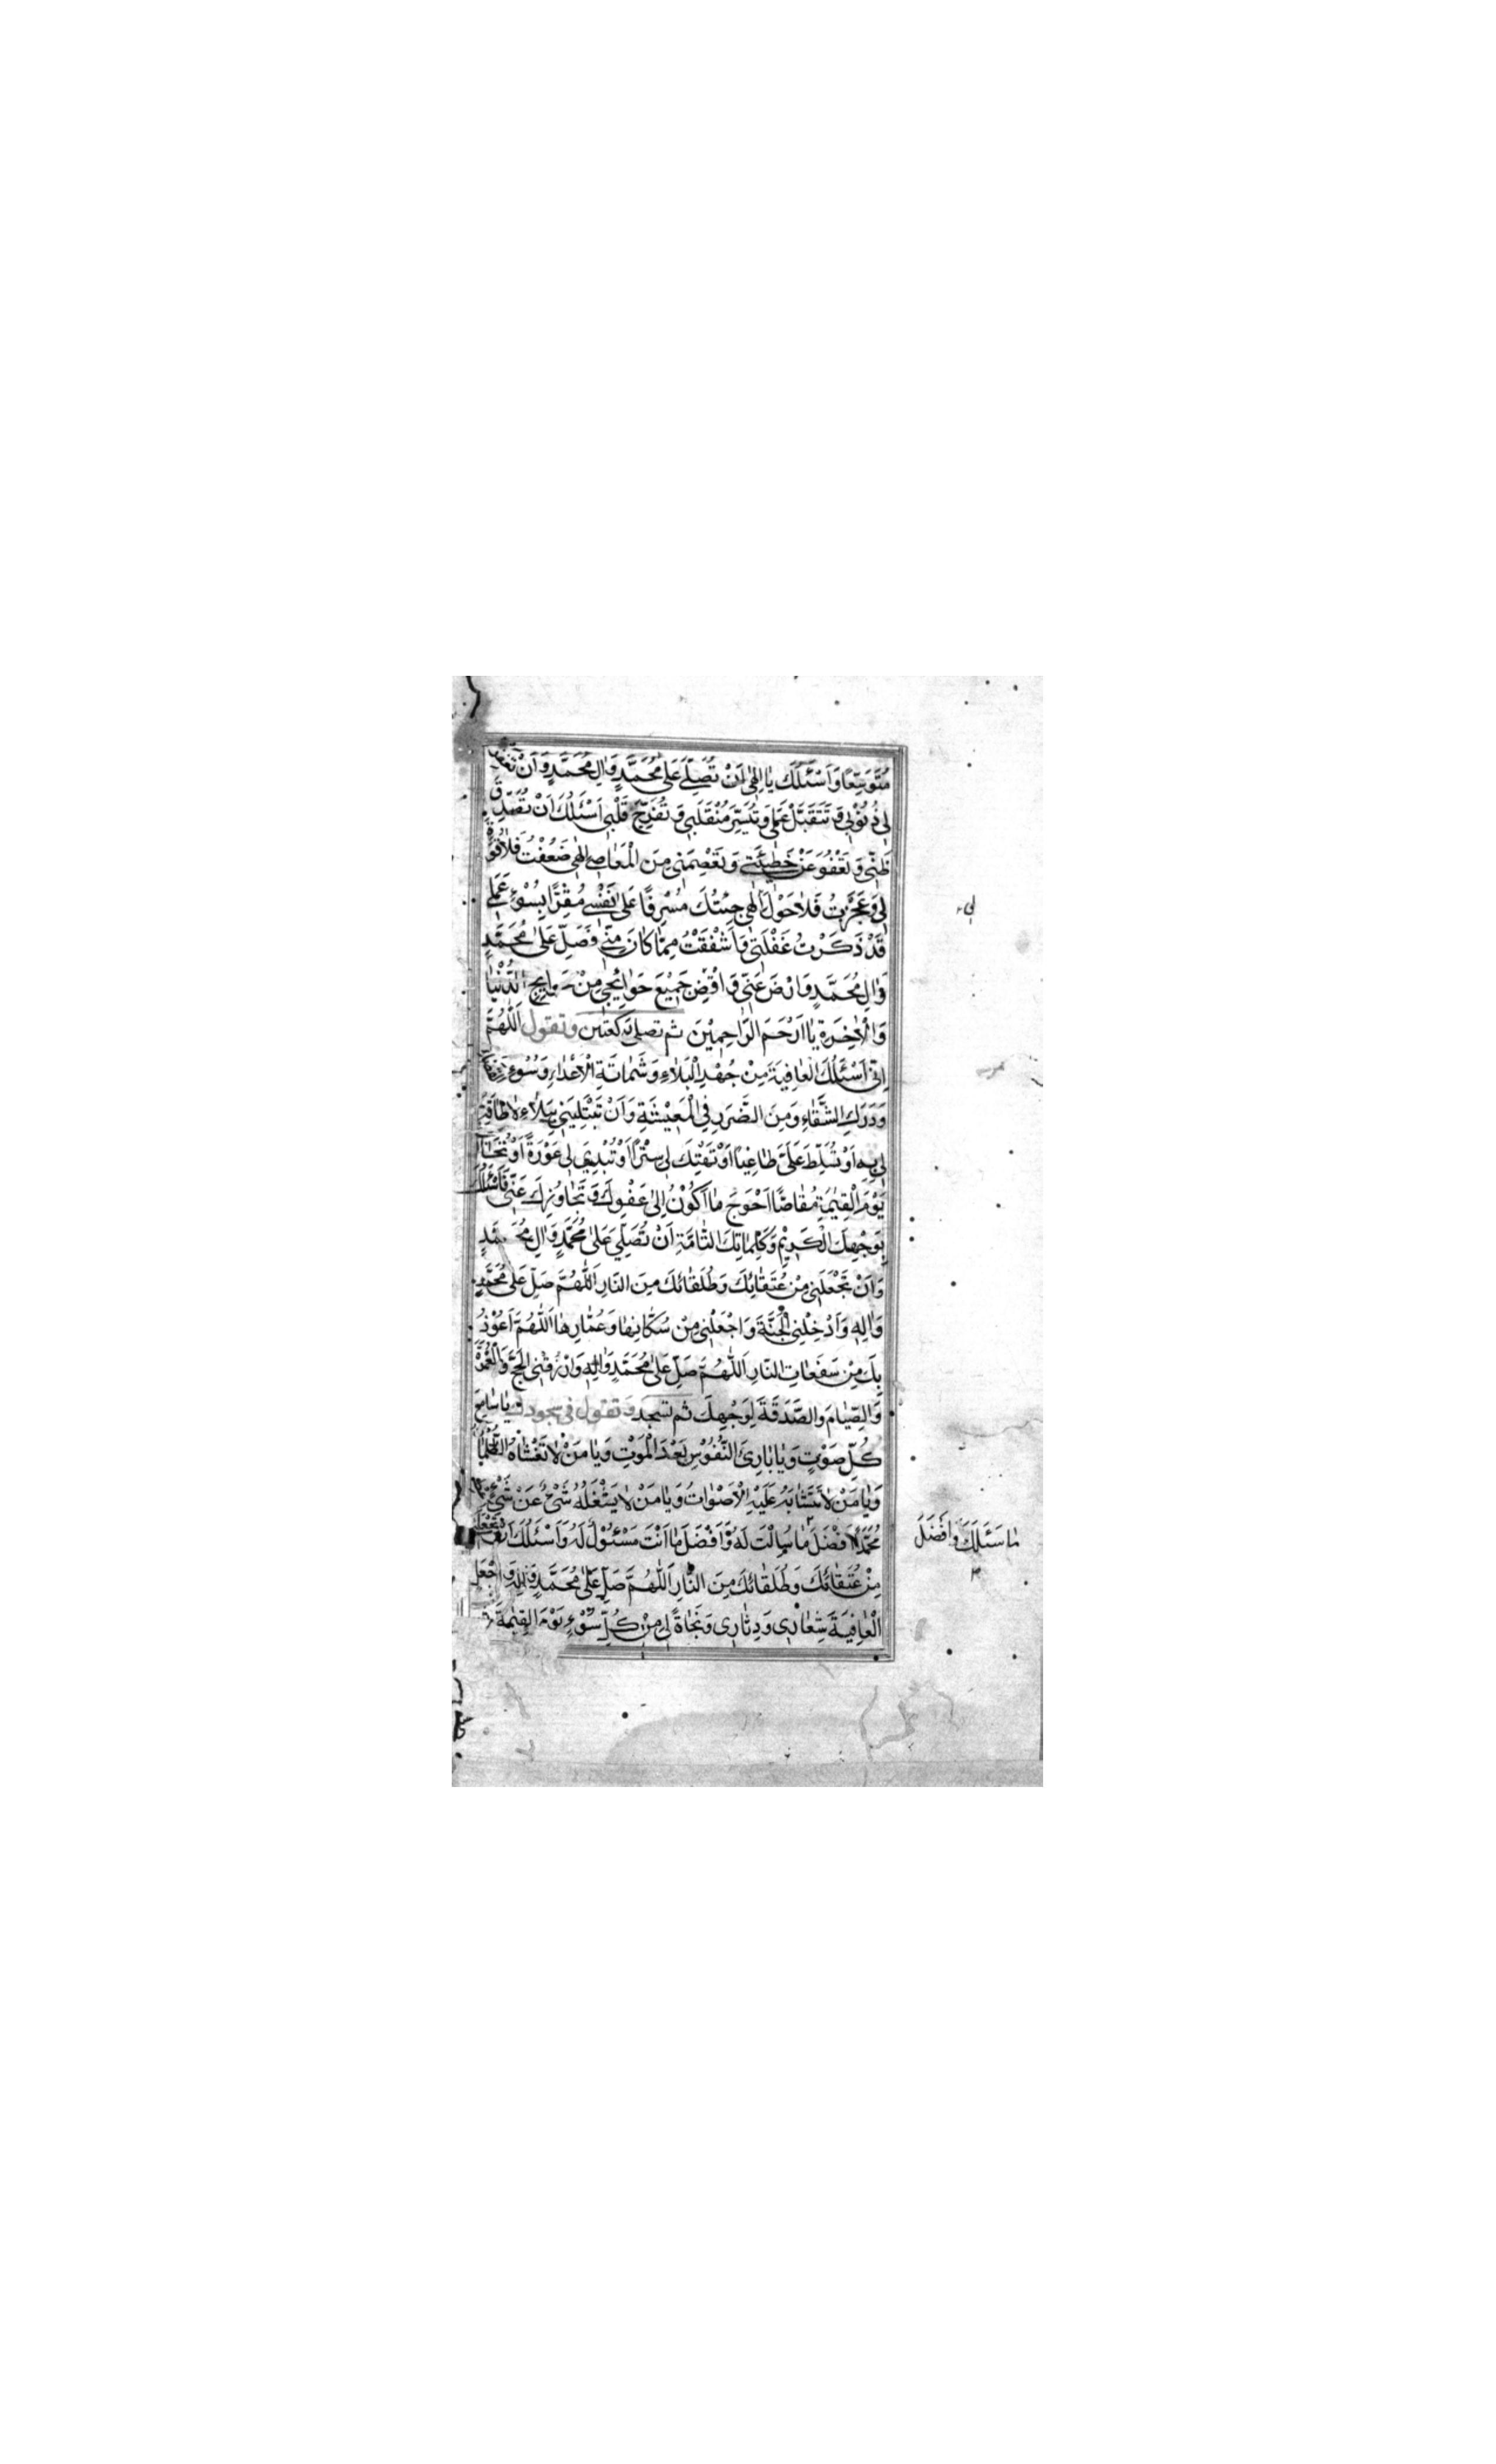 مُتَوَسِّعًا وَاَسْئَلُكَ يٰا اِلٰهِى اَنْ تُصَلِّىَ عَلىٰ مُحَمَّدٍ وَاٰلِ مُحَمَّدٍ وَاَنْ تَغْفِرَ
لِى ذُنُوْبِى وَ تَتَقَبَّلَ عَمَلِى وَ تُيَسِّرَ مُنْقَلَبِى وَ تُفَرِّجَ قَلْبِى اَسْئَلُكَ اَنْ تُصَدِّقَ
ظَنِّى وَ تَعْفُوَ عَنْ خَطِيْئَتِى وَ تَعْصِمَنِى مِنَ الْمَعٰاصِى اِلٰهِى ضَعُفْتُ فَلٰا قُوَّةَ
لِى وَ عَجَزْتُ فَلٰا حَوْلَ اِلٰهِى جِئْتُكَ مُسْرِفًا عَلىٰ نَفْسِى مُقِرًّا بِسُوْءِ عَمَلِى
قَدْ ذَكَرْتُ غَفْلَتِى وَاَشْفَقْتُ مِمّٰا كٰانَ مِنِّى فَصَلِّ عَلىٰ مُحَمَّدٍ
وَاٰلِ مُحَمَّدٍ وَارْضَ عَنِّى وَ اقْضِ جَمِيْعَ حَوٰائِجِى مِنْ حَوٰائِجِ الدُّنْيٰا
وَالْاٰخِرَةِ يٰا اَرْحَمَ الرّٰاحِمِيْنَ ثم تصلى ركعتين و تقول اَللّٰهُمَّ
اِنِّى اَسْئَلُكَ الْعٰافِيَةَ مِنْ جُهْدِ الْبَلٰاءِ وَ شَمٰاتَةِ الْاَعْدٰاءِ وَ سُوْءِ
وَ دَرَكِ الشَّقٰاءِ وَ مِنَ الضَّرَرِ فِى الْمَعِيْشَةِ وَ اَنْ تَبْتَلِيَنِى بِبَلٰاءٍ لٰا طٰاقَةَ
لِى بِهِ اَوْ تُسَلِّطَ عَلَىَّ طٰاغِيًا اَوْ تَهْتِكَ لِى سِتْرًا اَوْ تُبْدِىَ لِى عَوْرَةً اَوْ
يَوْمَ الْقِيٰمَةِ مُقٰاصًّا اَحْوَجَ مٰا اَكُوْنُ اِلىٰ عَفْوِكَ وَ تَجٰاوُزِكَ عَنِّى فَاَسْئَلُكَ
بِوَجْهِكَ الْكَرِيْمِ وَ كَلِمٰاتِكَ التّٰامَّةِ اَنْ تُصَلِّىَ عَلىٰ مُحَمَّدٍ وَاٰلِ مُحَمَّدٍ
وَ اَنْ تَجْعَلَنِى مِنْ عُتَقٰائِكَ وَ طُلَقٰائِكَ مِنَ النّٰارِ اَللّٰهُمَّ صَلِّ عَلىٰ مُحَمَّدٍ
وَاٰلِهِ وَ اَدْخِلْنِى الْجَنَّةَ وَ اجْعَلْنِى مِنْ سُكّٰانِهٰا وَ عُمّٰارِهٰا اَللّٰهُمَّ اَعُوْذُ
بِكَ مِنْ سَفَعٰاتِ النّٰارِ اَللّٰهُمَّ صَلِّ عَلىٰ مُحَمَّدٍ وَاٰلِهِ وَارْزُقْنِى الْحَجَّ وَ الْعُمْرَةَ
وَ الصِّيٰامَ وَالصَّدَقَةَ لِوَجْهِكَ ثم تسجد و تقول فى سجودك يٰا سٰامِعَ
كُلِّ صَوْتٍ وَ يٰا بٰارِئَ النُّفُوْسِ بَعْدَ الْمَوْتِ وَ يٰا مَنْ لٰا تَغْشٰاهُ الظُّلُمٰاتُ
وَ يٰا مَنْ لٰا تَتَشٰابَهُ عَلَيْهِ الْاَصْوٰاتُ وَ يٰا مَنْ لٰا يَشْغَلُهُ شَىْءٌ عَنْ شَىْءٍ
مُحَمَّدًا اَفْضَلَ مٰا سُئِلْتَ لَهُ وَ اَفْضَلَ مٰا اَنْتَ مَسْئُوْلٌ لَهُ وَ اَسْئَلُكَ اَنْ تَجْعَلَنِى
مِنْ عُتَقٰائِكَ وَ طُلَقٰائِكَ مِنَ النّٰارِ اَللّٰهُمَّ صَلِّ عَلىٰ مُحَمَّدٍ وَاٰلِهِ وَ اجْعَلِ
الْعٰافِيَةَ شِعٰارِى وَ دِثٰارِى وَ نَجٰاةً لِى مِنْ كُلِّ سُوْءٍ يَوْمَ الْقِيٰمَةِ
لى
مٰا سَئَلَكَ وَ اَفْضَلَ